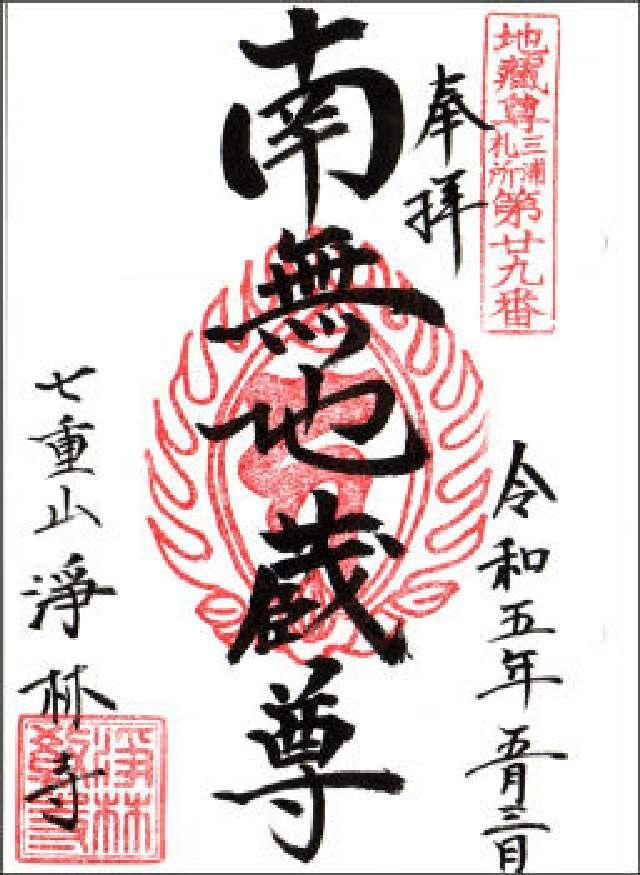 地蔵尊三浦札所第廿九番
奉拝
令和五年五月三日
南無地蔵尊
七重山淨林寺